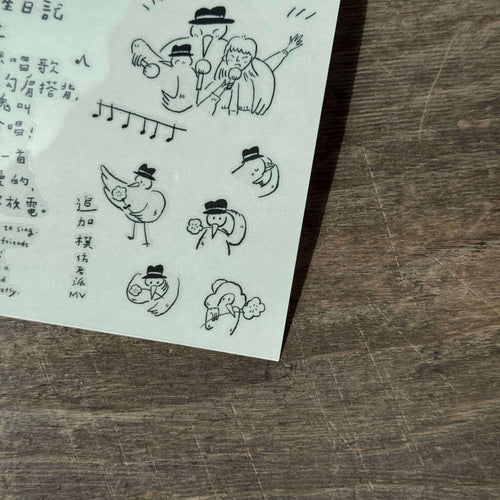 生日記
唱歌
勾肩搭背,
鬼叫
唱!
一首
的,
放電。
to sing
friends
a
追加模仿若派MV